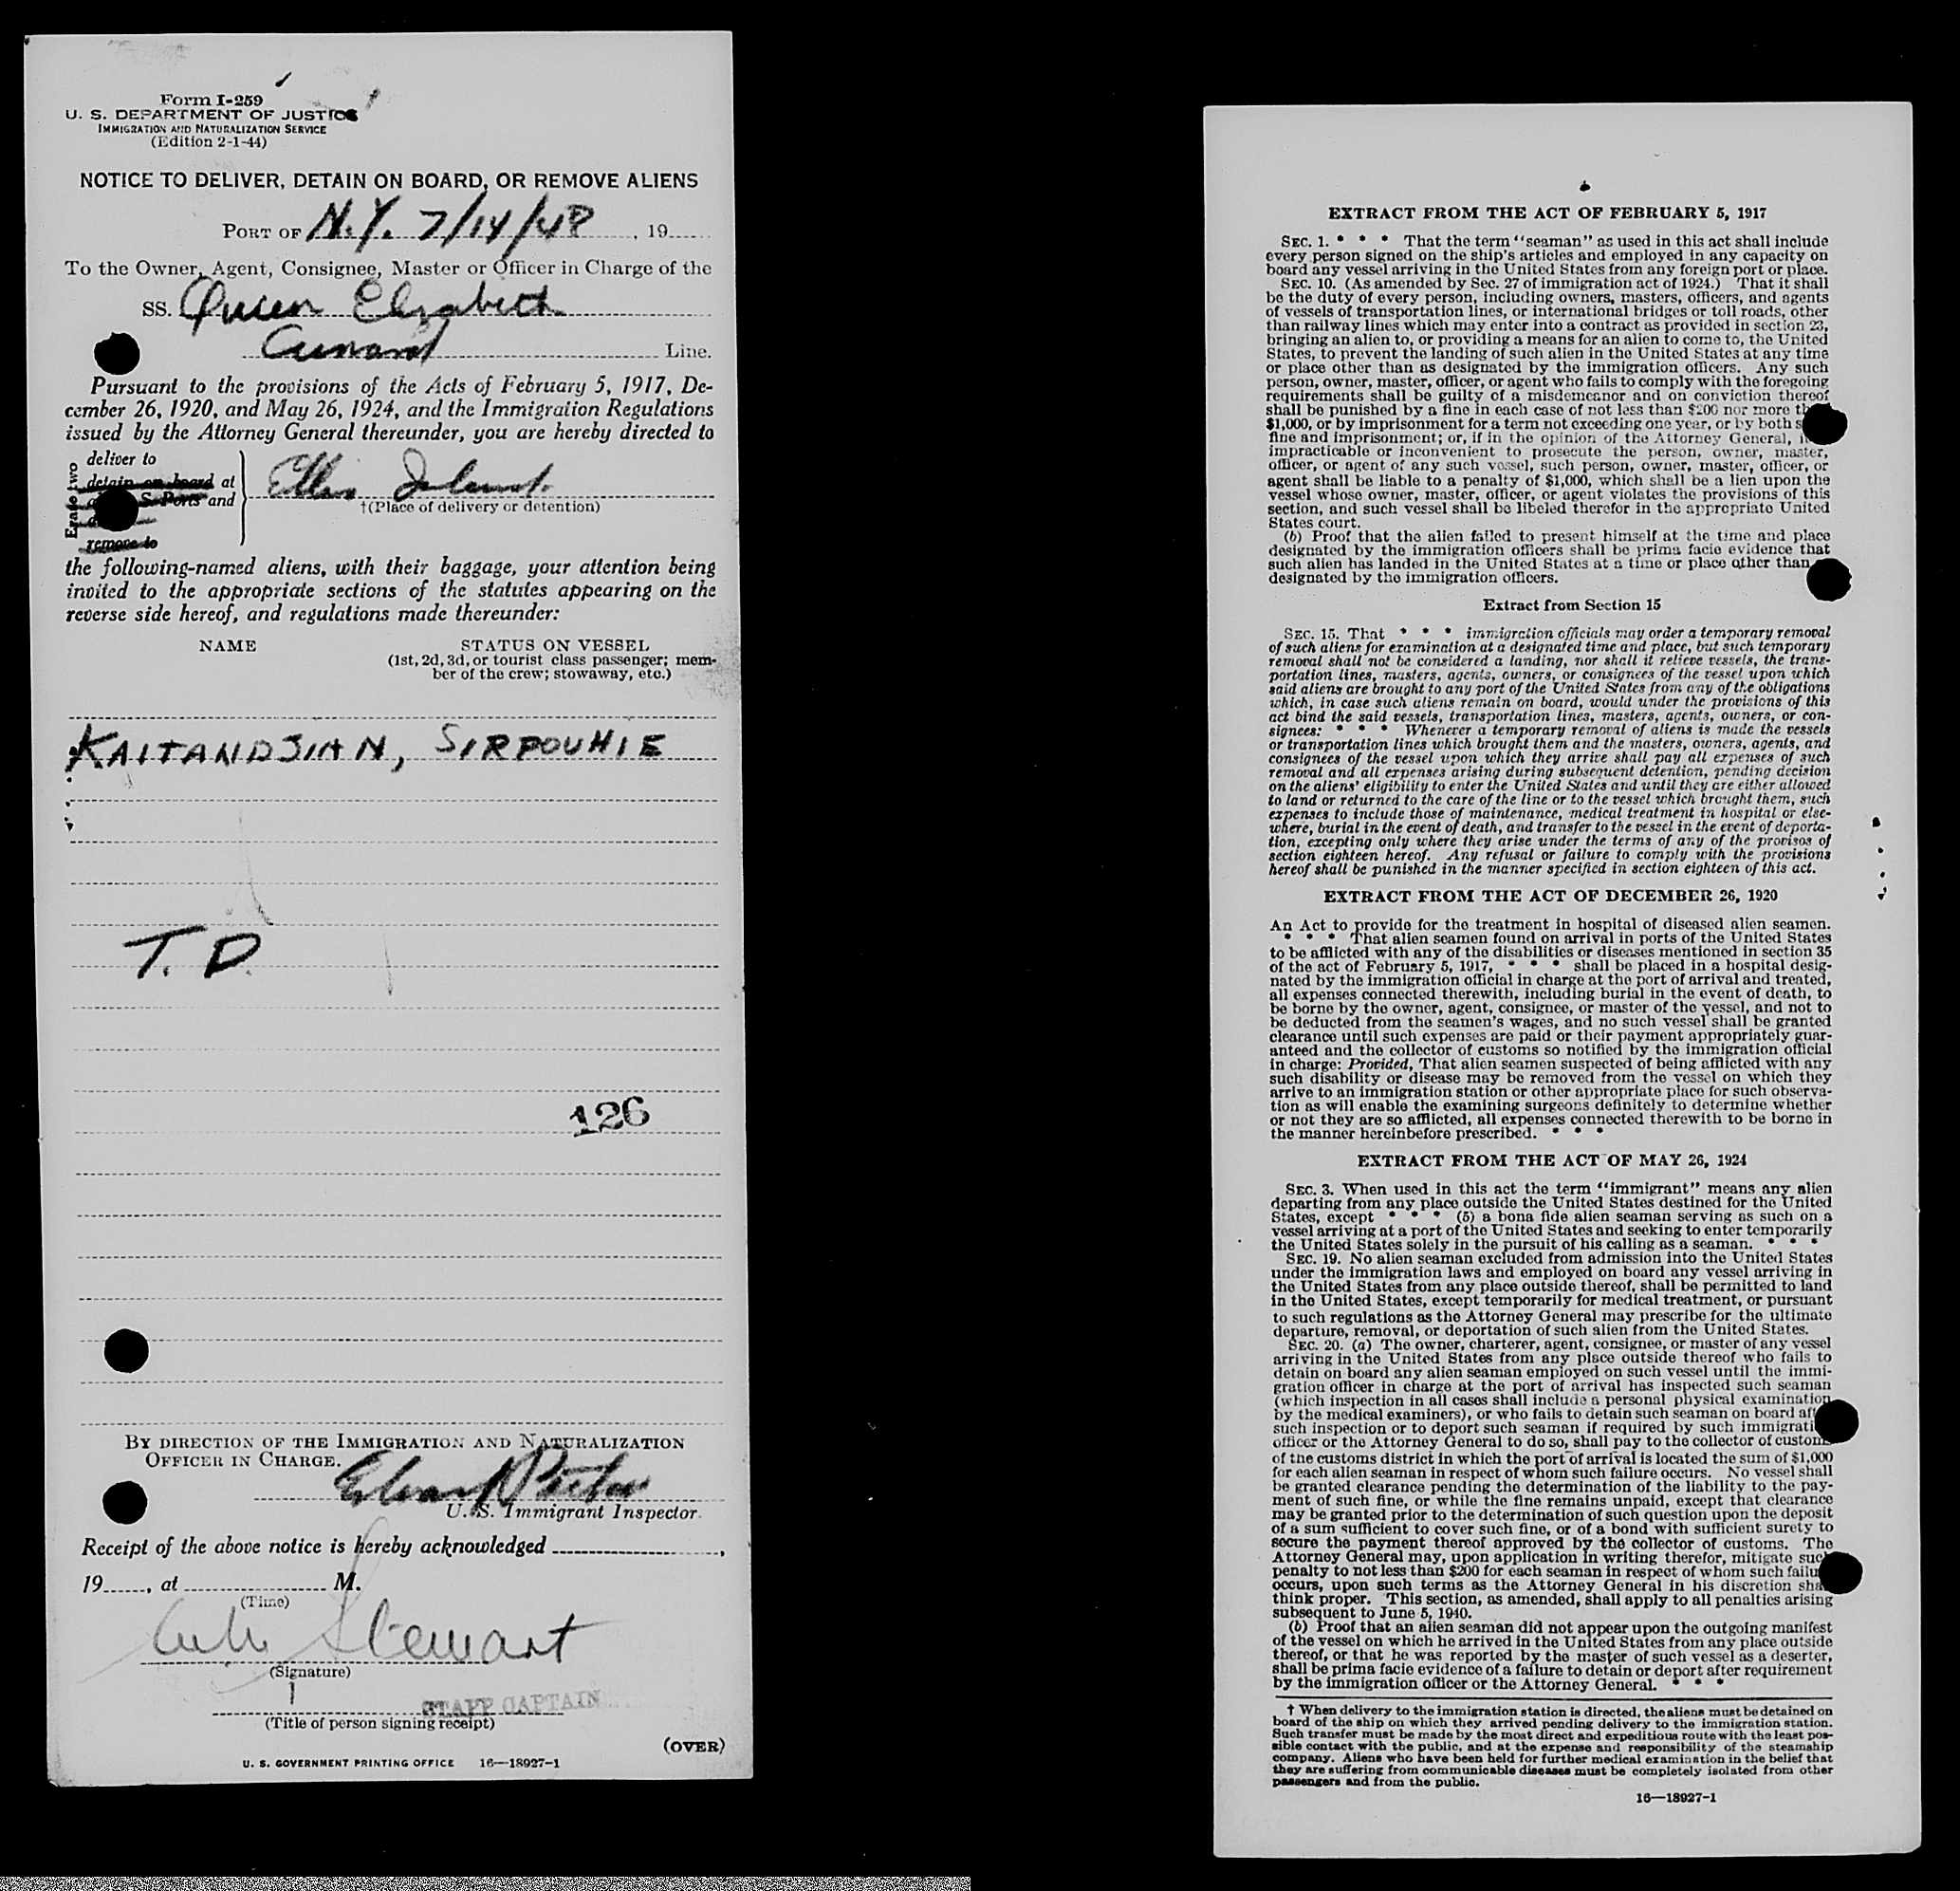 Form I-259
U. S. DEPARTMENT OF JUSTICE
IMMIGRATION AND NATURALIZATION SERVICE
(Edition 2-1-44)
NOTICE TO DELIVER, DETAIN ON BOARD, OR REMOVE ALIENS
PORT OF N.Y. 7/14/48, 19
To the Owner, Agent, Consignee, Master or Officer in Charge of the
SS. Queen Elizabeth
Cunard Line.
Pursuant to the provisions of the Acts of February 5, 1917, De-
cember 26, 1920, and May 26, 1924, and the Immigration Regulations
issued by the Attorney General thereunder, you are hereby directed to
Erase two
deliver to
detain on board at
S. Ports and
remove to
Ellis Island.
†(Place of delivery or detention)
the following-named aliens, with their baggage, your attention being
invited to the appropriate sections of the statutes appearing on the
reverse side hereof, and regulations made thereunder:
NAME STATUS ON VESSEL
(1st, 2d, 3d, or tourist class passenger; mem-
ber of the crew; stowaway, etc.)
KAITANDJIAN, SIRPOUHIE
T. D.
126
BY DIRECTION OF THE IMMIGRATION AND NATURALIZATION
OFFICER IN CHARGE.
U. S. Immigrant Inspector.
Receipt of the above notice is hereby acknowledged ,
19 , at M.
(Time)
Stewart
(Signature)
STAFF CAPTAIN
(Title of person signing receipt)
(OVER)
U. S. GOVERNMENT PRINTING OFFICE 16—18927-1
EXTRACT FROM THE ACT OF FEBRUARY 5, 1917
SEC. 1. * * * That the term "seaman" as used in this act shall include
every person signed on the ship's articles and employed in any capacity on
board any vessel arriving in the United States from any foreign port or place.
SEC. 10. (As amended by Sec. 27 of immigration act of 1924.) That it shall
be the duty of every person, including owners, masters, officers, and agents
of vessels of transportation lines, or international bridges or toll roads, other
than railway lines which may enter into a contract as provided in section 23,
bringing an alien to, or providing a means for an alien to come to, the United
States, to prevent the landing of such alien in the United States at any time
or place other than as designated by the immigration officers. Any such
person, owner, master, officer, or agent who fails to comply with the foregoing
requirements shall be guilty of a misdemeanor and on conviction thereof
shall be punished by a fine in each case of not less than $200 nor more
$1,000, or by imprisonment for a term not exceeding one year, or by both
fine and imprisonment; or, if in the opinion of the Attorney General,
impracticable or inconvenient to prosecute the person, owner, master,
officer, or agent of any such vessel, such person, owner, master, officer, or
agent shall be liable to a penalty of $1,000, which shall be a lien upon the
vessel whose owner, master, officer, or agent violates the provisions of this
section, and such vessel shall be libeled therefor in the appropriate United
States court.
(b) Proof that the alien failed to present himself at the time and place
designated by the immigration officers shall be prima facie evidence that
such alien has landed in the United States at a time or place other than
designated by the immigration officers.
Extract from Section 15
SEC. 15. That * * * immigration officials may order a temporary removal
of such aliens for examination at a designated time and place, but such temporary
removal shall not be considered a landing, nor shall it relieve vessels, the trans-
portation lines, masters, agents, owners, or consignees of the vessel upon which
said aliens are brought to any port of the United States from any of the obligations
which, in case such aliens remain on board, would under the provisions of this
act bind the said vessels, transportation lines, masters, agents, owners, or con-
signees: * * * Whenever a temporary removal of aliens is made the vessels
or transportation lines which brought them and the masters, owners, agents, and
consignees of the vessel upon which they arrive shall pay all expenses of such
removal and all expenses arising during subsequent detention, pending decision
on the aliens' eligibility to enter the United States and until they are either allowed
to land or returned to the care of the line or to the vessel which brought them, such
expenses to include those of maintenance, medical treatment in hospital or else-
where, burial in the event of death, and transfer to the vessel in the event of deporta-
tion, excepting only where they arise under the terms of any of the provisos of
section eighteen hereof. Any refusal or failure to comply with the provisions
hereof shall be punished in the manner specified in section eighteen of this act.
EXTRACT FROM THE ACT OF DECEMBER 26, 1920
An Act to provide for the treatment in hospital of diseased alien seamen.
* * * That alien seamen found on arrival in ports of the United States
to be afflicted with any of the disabilities or diseases mentioned in section 35
of the act of February 5, 1917, * * * shall be placed in a hospital desig-
nated by the immigration official in charge at the port of arrival and treated,
all expenses connected therewith, including burial in the event of death, to
be borne by the owner, agent, consignee, or master of the vessel, and not to
be deducted from the seamen's wages, and no such vessel shall be granted
clearance until such expenses are paid or their payment appropriately guar-
anteed and the collector of customs so notified by the immigration official
in charge: Provided, That alien seamen suspected of being afflicted with any
such disability or disease may be removed from the vessel on which they
arrive to an immigration station or other appropriate place for such observa-
tion as will enable the examining surgeons definitely to determine whether
or not they are so afflicted, all expenses connected therewith to be borne in
the manner hereinbefore prescribed. * * *
EXTRACT FROM THE ACT OF MAY 26, 1924
SEC. 3. When used in this act the term "immigrant" means any alien
departing from any place outside the United States destined for the United
States, except * * * (5) a bona fide alien seaman serving as such on a
vessel arriving at a port of the United States and seeking to enter temporarily
the United States solely in the pursuit of his calling as a seaman. * * *
SEC. 19. No alien seaman excluded from admission into the United States
under the immigration laws and employed on board any vessel arriving in
the United States from any place outside thereof, shall be permitted to land
in the United States, except temporarily for medical treatment, or pursuant
to such regulations as the Attorney General may prescribe for the ultimate
departure, removal, or deportation of such alien from the United States.
SEC. 20. (a) The owner, charterer, agent, consignee, or master of any vessel
arriving in the United States from any place outside thereof who fails to
detain on board any alien seaman employed on such vessel until the immi-
gration officer in charge at the port of arrival has inspected such seaman
(which inspection in all cases shall include a personal physical examination
by the medical examiners), or who fails to detain such seaman on board
such inspection or to deport such seaman if required by such
officer or the Attorney General to do so, shall pay to the collector of customs
of the customs district in which the port of arrival is located the sum of $1,000
for each alien seaman in respect of whom such failure occurs. No vessel shall
be granted clearance pending the determination of the liability to the pay-
ment of such fine, or while the fine remains unpaid, except that clearance
may be granted prior to the determination of such question upon the deposit
of a sum sufficient to cover such fine, or of a bond with sufficient surety to
secure the payment thereof approved by the collector of customs. The
Attorney General may, upon application in writing therefor, mitigate such
penalty to not less than $200 for each seaman in respect of whom such
occurs, upon such terms as the Attorney General in his discretion
think proper. This section, as amended, shall apply to all penalties arising
subsequent to June 5, 1940.
(b) Proof that an alien seaman did not appear upon the outgoing manifest
of the vessel on which he arrived in the United States from any place outside
thereof, or that he was reported by the master of such vessel as a deserter,
shall be prima facie evidence of a failure to detain or deport after requirement
by the immigration officer or the Attorney General. * * *
† When delivery to the immigration station is directed, the aliens must be detained on
board of the ship on which they arrived pending delivery to the immigration station.
Such transfer must be made by the most direct and expeditious route with the least pos-
sible contact with the public, and at the expense and responsibility of the steamship
company. Aliens who have been held for further medical examination in the belief that
they are suffering from communicable diseases must be completely isolated from other
passengers and from the public.
16—18927-1